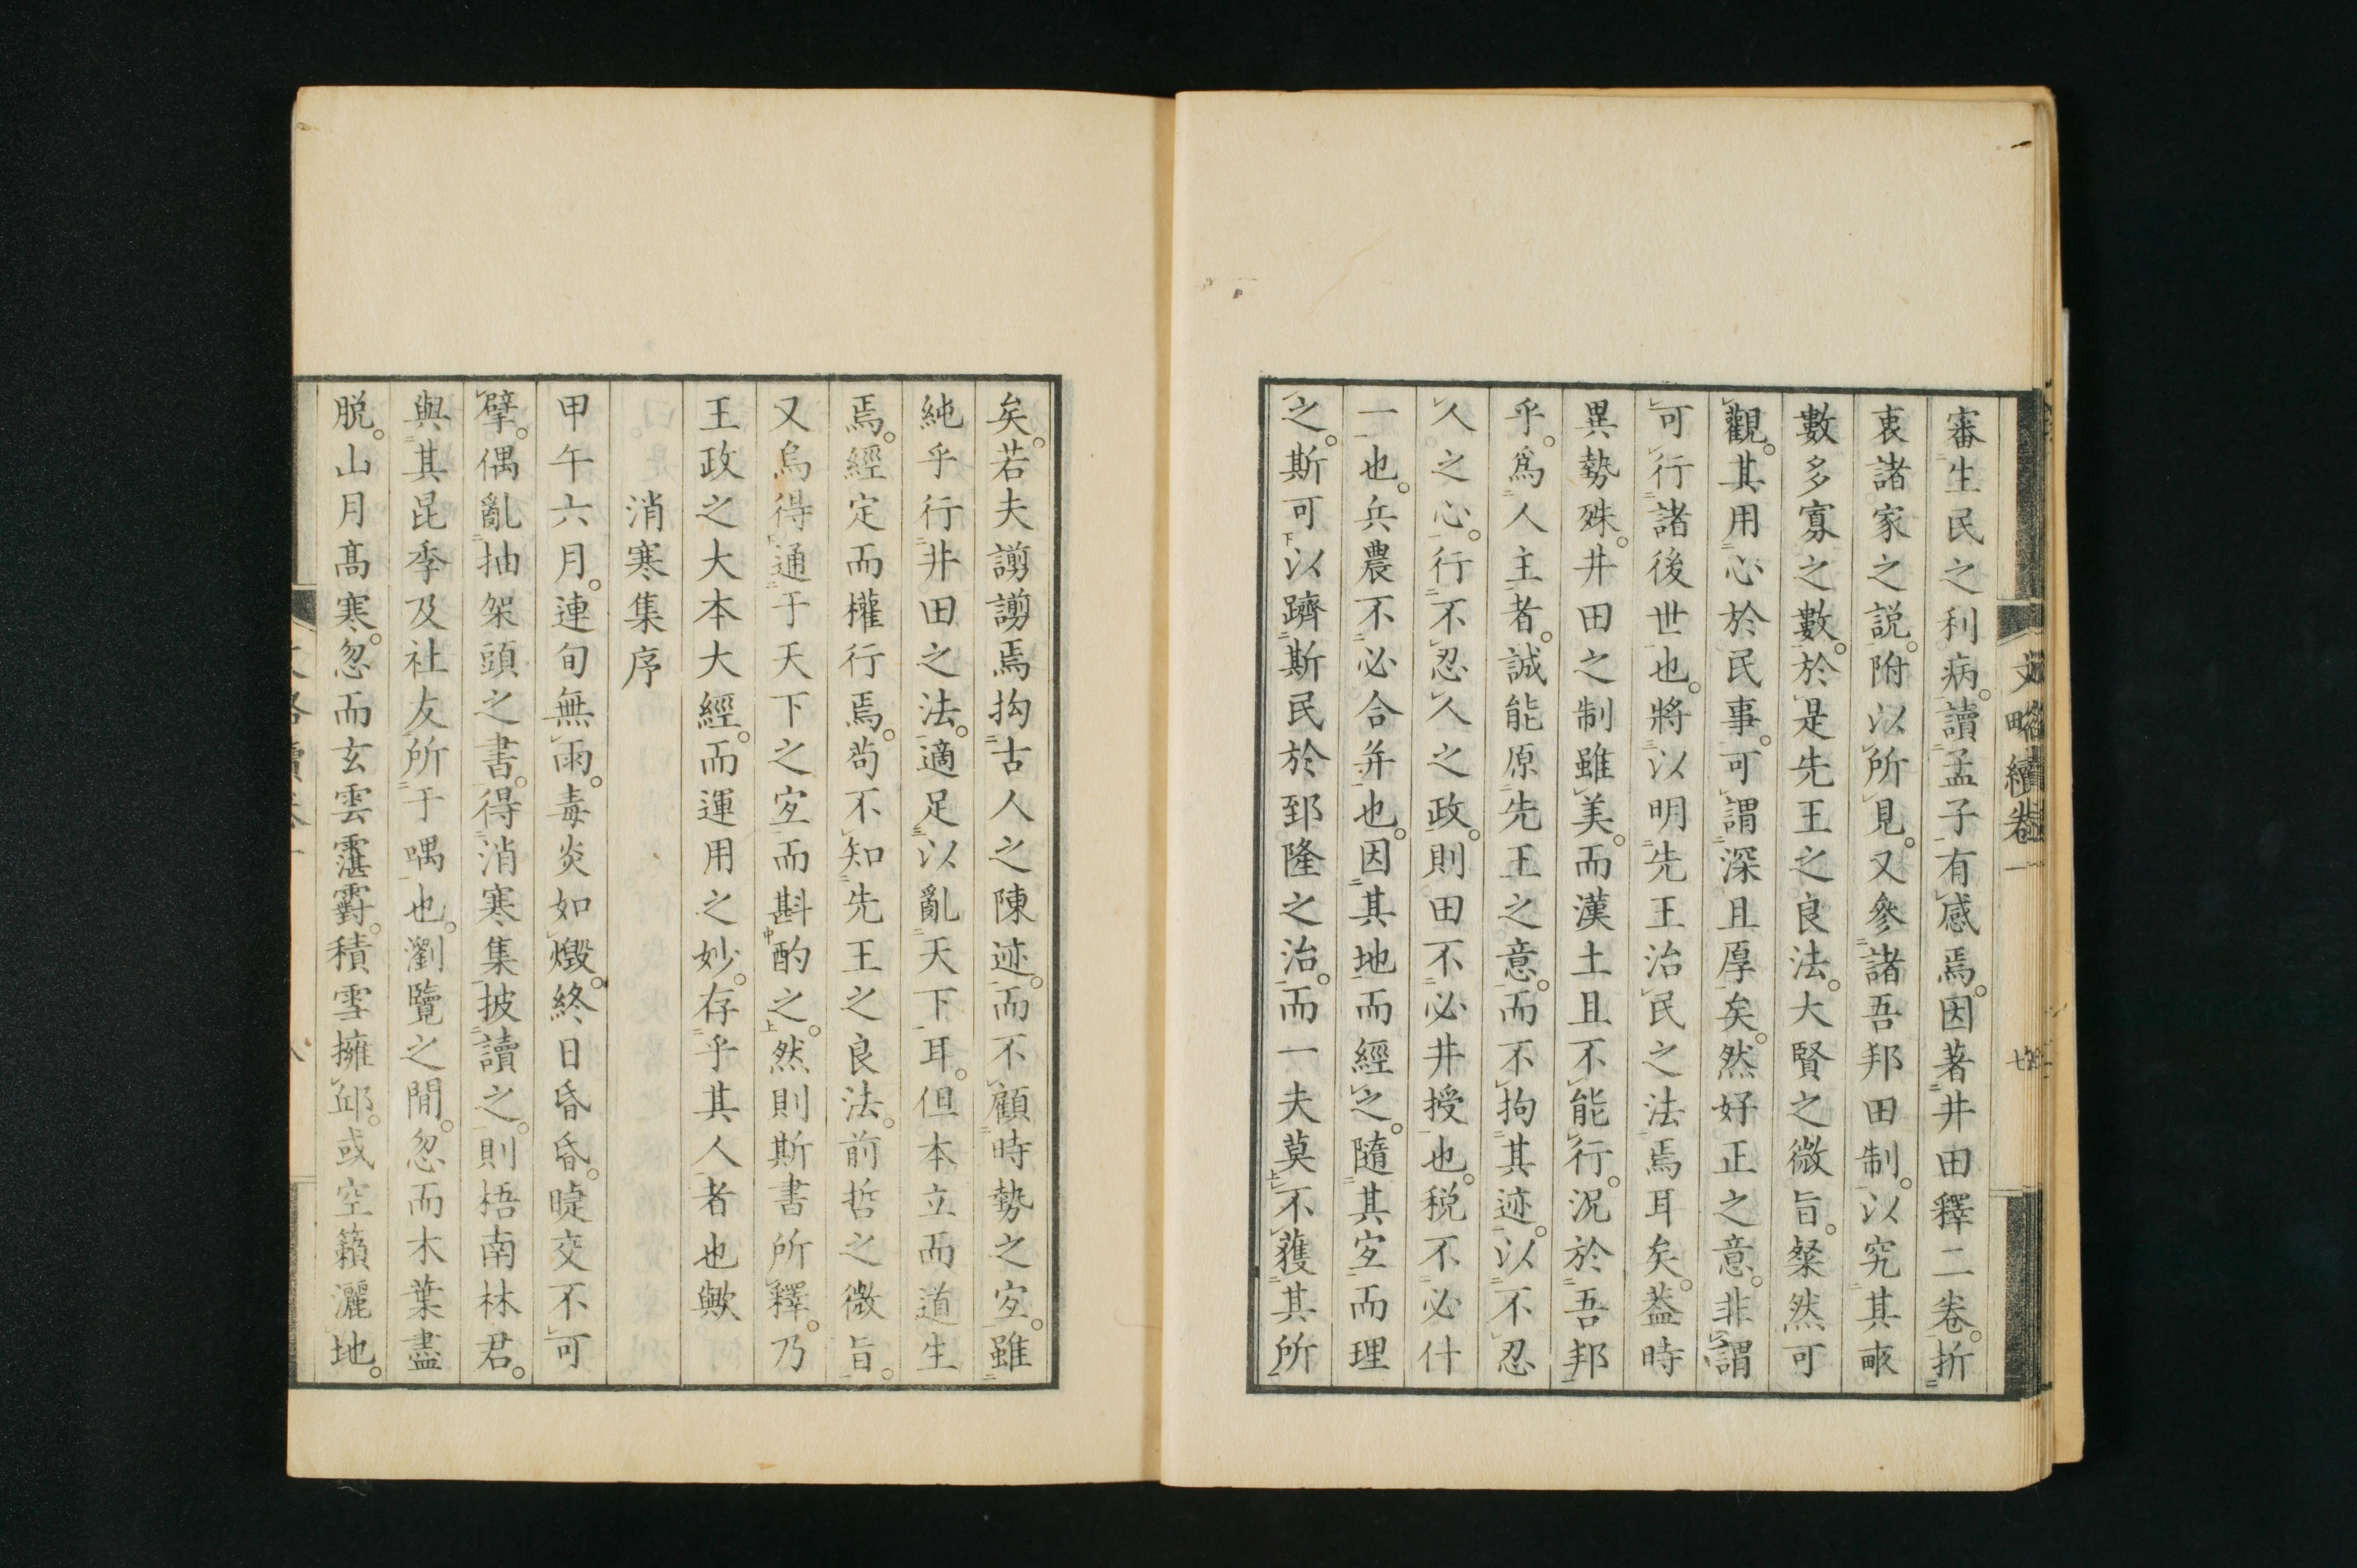 文略續卷一 七
審生民之利病。讀孟子有感焉。因著井田釋二卷。折
衷諸家之説。附以所見。又參諸吾邦田制。以究其畞
數多寡之數。於是先王之良法。大賢之微旨。粲然可
觀。其用心於民事。可謂深且厚矣。然好正之意。非謂
可行諸後世也。將以明先王治民之法焉耳矣。葢時
異勢殊。井田之制雖美。而漢土且不能行。況於吾邦
乎。爲人主者。誠能原先王之意。而不拘其迹。以不忍
人之心。行不忍人之政。則田不必井授也。税不必什
一也。兵農不必合并也。因其地而經之。隨其宐而理
之。斯可以躋斯民於郅隆之治。而一夫莫不獲其所
矣。若夫謭謭焉拘古人之陳迹。而不顧時勢之宐。雖
純乎行井田之法。適足以亂天下耳。但本立而道生
焉。經定而權行焉。茍不知先王之良法。前哲之微旨。
又烏得通于天下之宐而斟酌之。然則斯書所釋。乃
王政之大本大經。而運用之妙。存乎其人者也歟
消寒集序
甲午六月。連旬無雨。毒炎如燬。終日昏昏。睫交不可
擘。偶亂抽架頭之書。得消寒集披讀之。則梧南林君。
與其昆季及社友所于喁也。瀏覽之間。忽而木葉盡
脱。山月高寒。忽而玄雲霮䨴。積雪擁邱。或空籟灑地。